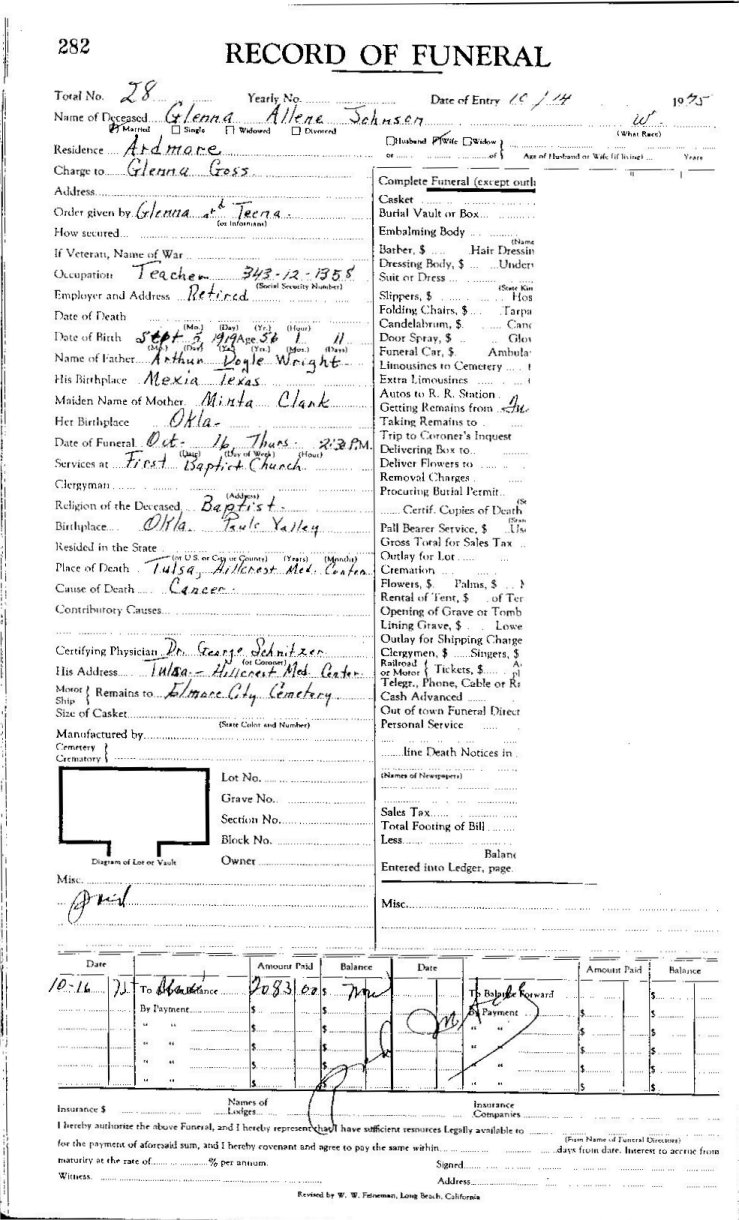 282
RECORD OF FUNERAL
Total No. 28 Yearly No. Date of Entry 10 / 14 1975
Name of Deceased Glenna Allene Johnson W.
Married Single Widowed Divorced Husband Wife Widow (What Race)
Residence Ardmore or of Age of Husband or Wife (if living) Years
Charge to Glenna Goss
Address
Order given by Glenna and Teena
(or Informant)
How secured
If Veteran, Name of War
Occupation Teacher 343-12-1358
(Social Security Number)
Employer and Address Retired
Date of Death
(Mo.) (Day) (Yr.) (Hour)
Date of Birth Sept 5, 1919 Age 56 1 11
(Mo.) (Day) (Yr.) (Yrs.) (Mos.) (Days)
Name of Father Arthur Doyle Wright
His Birthplace Mexia Texas
Maiden Name of Mother Minta Clark
Her Birthplace Okla-
Date of Funeral Oct- 16, Thurs. 2:30 P.M.
(Date) (Day of Week) (Hour)
Services at First Baptist Church
Clergyman
(Address)
Religion of the Deceased Baptist
Birthplace Okla. Pauls Valley
Resided in the State
(or U S. or City or County) (Years) (Months)
Place of Death Tulsa, Hillcrest Med. Center
Cause of Death Cancer
Contributory Causes
Certifying Physician Dr. George Schnitzer
(or Coroner)
His Address Tulsa - Hillcrest Med Center
Motor Ship Remains to Elmore City Cemetery
Size of Casket
(State Color and Number)
Manufactured by
Cemetery
Crematory
Lot No.
Grave No.
Section No.
Block No.
Owner
Diagram of Lot or Vault
Misc.
Complete Funeral (except outl
Casket
Burial Vault or Box
Embalming Body
(Name
Barber, $ Hair Dressin
Dressing Body, $ Under
Suit or Dress
(State Kin
Slippers, $ Hos
Folding Chairs, $ Tarpa
Candelabrum, $ Canc
Door Spray, $ Glov
Funeral Car, $ Ambula
Limousines to Cemetery
Extra Limousines
Autos to R. R. Station
Getting Remains from
Taking Remains to
Trip to Coroner's Inquest
Delivering Box to
Deliver Flowers to
Removal Charges
Procuring Burial Permit
(St
Certif. Copies of Death
(State
Pall Bearer Service, $ Us
Gross Total for Sales Tax
Outlay for Lot
Cremation
Flowers, $ Palms, $
Rental of Tent, $ of Ter
Opening of Grave or Tomb
Lining Grave, $ Lowe
Outlay for Shipping Charge
Clergymen, $ Singers, $
Railroad or Motor Tickets, $
Telegr., Phone, Cable or Ra
Cash Advanced
Out of town Funeral Direct
Personal Service
line Death Notices in
(Names of Newspapers)
Sales Tax
Total Footing of Bill
Less
Balanc
Entered into Ledger, page
Misc.
Date Amount Paid Balance Date Amount Paid Balance
10-16 75 To Balance 2083 00 $ To Balance Forward $
By Payment $ $ By Payment $ $
" " $ $ " " $ $
" " $ $ " " $ $
" " $ $ " " $ $
" " $ $ " " $ $
Insurance $ Names of Lodges Insurance Companies
I hereby authorize the above Funeral, and I hereby represent that I have sufficient resources Legally available to
(Firm Name of Funeral Directors)
for the payment of aforesaid sum, and I hereby covenant and agree to pay the same within days from date. Interest to accrue from
maturity at the rate of % per annum. Signed
Witness. Address
Revised by W. W. Feineman, Long Beach, California